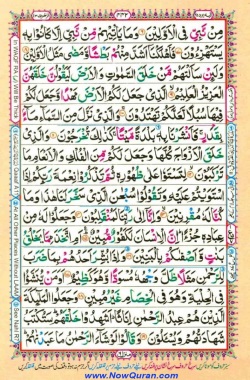 مِنْ نَّبِىٍّ فِى الْاَوَّلِيْنَ ۝ وَمَا يَاْتِيْهِمْ مِّنْ نَّبِىٍّ اِلَّا كَانُوْا بِهٖ
يَسْتَهْزِءُوْنَ ۝ فَاَهْلَكْنَآ اَشَدَّ مِنْهُمْ بَطْشًا وَّمَضٰى مَثَلُ الْاَوَّلِيْنَ ۝
وَلَئِنْ سَاَلْتَهُمْ مَّنْ خَلَقَ السَّمٰوٰتِ وَالْاَرْضَ لَيَقُوْلُنَّ خَلَقَهُنَّ
الْعَزِيْزُ الْعَلِيْمُ ۝ الَّذِىْ جَعَلَ لَكُمُ الْاَرْضَ مَهْدًا وَّجَعَلَ لَكُمْ
فِيْهَا سُبُلًا لَّعَلَّكُمْ تَهْتَدُوْنَ ۝ وَالَّذِىْ نَزَّلَ مِنَ السَّمَآءِ مَآءًۢ
بِقَدَرٍ ۚ فَاَنْشَرْنَا بِهٖ بَلْدَةً مَّيْتًا ۚ كَذٰلِكَ تُخْرَجُوْنَ ۝ وَالَّذِىْ
خَلَقَ الْاَزْوَاجَ كُلَّهَا وَجَعَلَ لَكُمْ مِّنَ الْفُلْكِ وَالْاَنْعَامِ مَا
تَرْكَبُوْنَ ۝ لِتَسْتَوٗا عَلٰى ظُهُوْرِهٖ ثُمَّ تَذْكُرُوْا نِعْمَةَ رَبِّكُمْ اِذَا
اسْتَوَيْتُمْ عَلَيْهِ وَتَقُوْلُوْا سُبْحٰنَ الَّذِىْ سَخَّرَ لَنَا هٰذَا وَمَا
كُنَّا لَهٗ مُقْرِنِيْنَ ۝ وَاِنَّآ اِلٰى رَبِّنَا لَمُنْقَلِبُوْنَ ۝ وَجَعَلُوْا لَهٗ مِنْ
عِبَادِهٖ جُزْءًا ؕ اِنَّ الْاِنْسَانَ لَكَفُوْرٌ مُّبِيْنٌ ۝ اَمِ اتَّخَذَ مِمَّا يَخْلُقُ
بَنٰتٍ وَّاَصْفٰىكُمْ بِالْبَنِيْنَ ۝ وَاِذَا بُشِّرَ اَحَدُهُمْ بِمَا ضَرَبَ
لِلرَّحْمٰنِ مَثَلًا ظَلَّ وَجْهُهٗ مُسْوَدًّا وَّهُوَ كَظِيْمٌ ۝ اَوَمَنْ يُّنَشَّؤُا
فِى الْحِلْيَةِ وَهُوَ فِى الْخِصَامِ غَيْرُ مُبِيْنٍ ۝ وَجَعَلُوا الْمَلٰٓئِكَةَ
الَّذِيْنَ هُمْ عِبٰدُ الرَّحْمٰنِ اِنَاثًا ؕ اَشَهِدُوْا خَلْقَهُمْ ؕ سَتُكْتَبُ
شَهَادَتُهُمْ وَيُسْئَلُوْنَ ۝ وَقَالُوْا لَوْ شَآءَ الرَّحْمٰنُ مَا عَبَدْنٰهُمْ ؕ
www.NowQuran.com